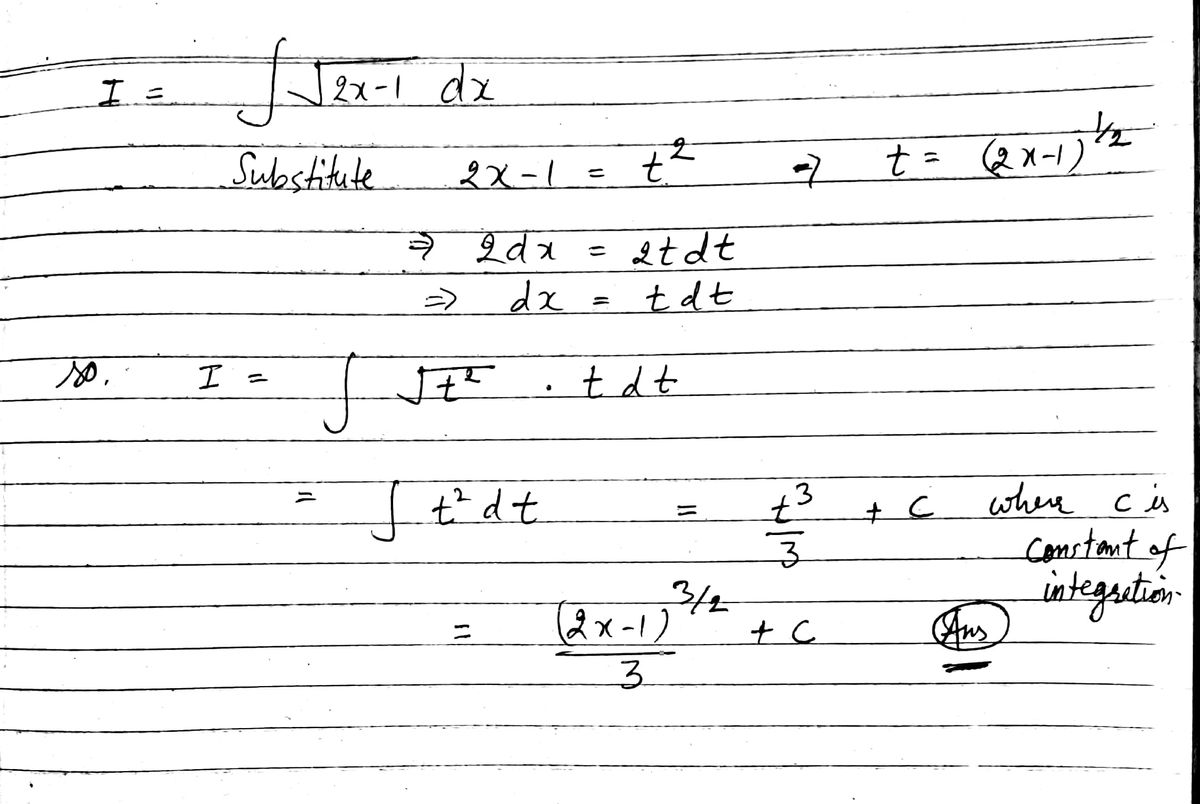 I = ∫ √2x-1 dx
Substitute 2x-1 = t² ⇒ t = (2x-1)^1/2
⇒ 2dx = 2t dt
⇒ dx = t dt
so. I = ∫ √t² . t dt
= ∫ t² dt = t³/3 + C where c is
constant of
integration.
= (2x-1)^3/2 / 3 + C Ans